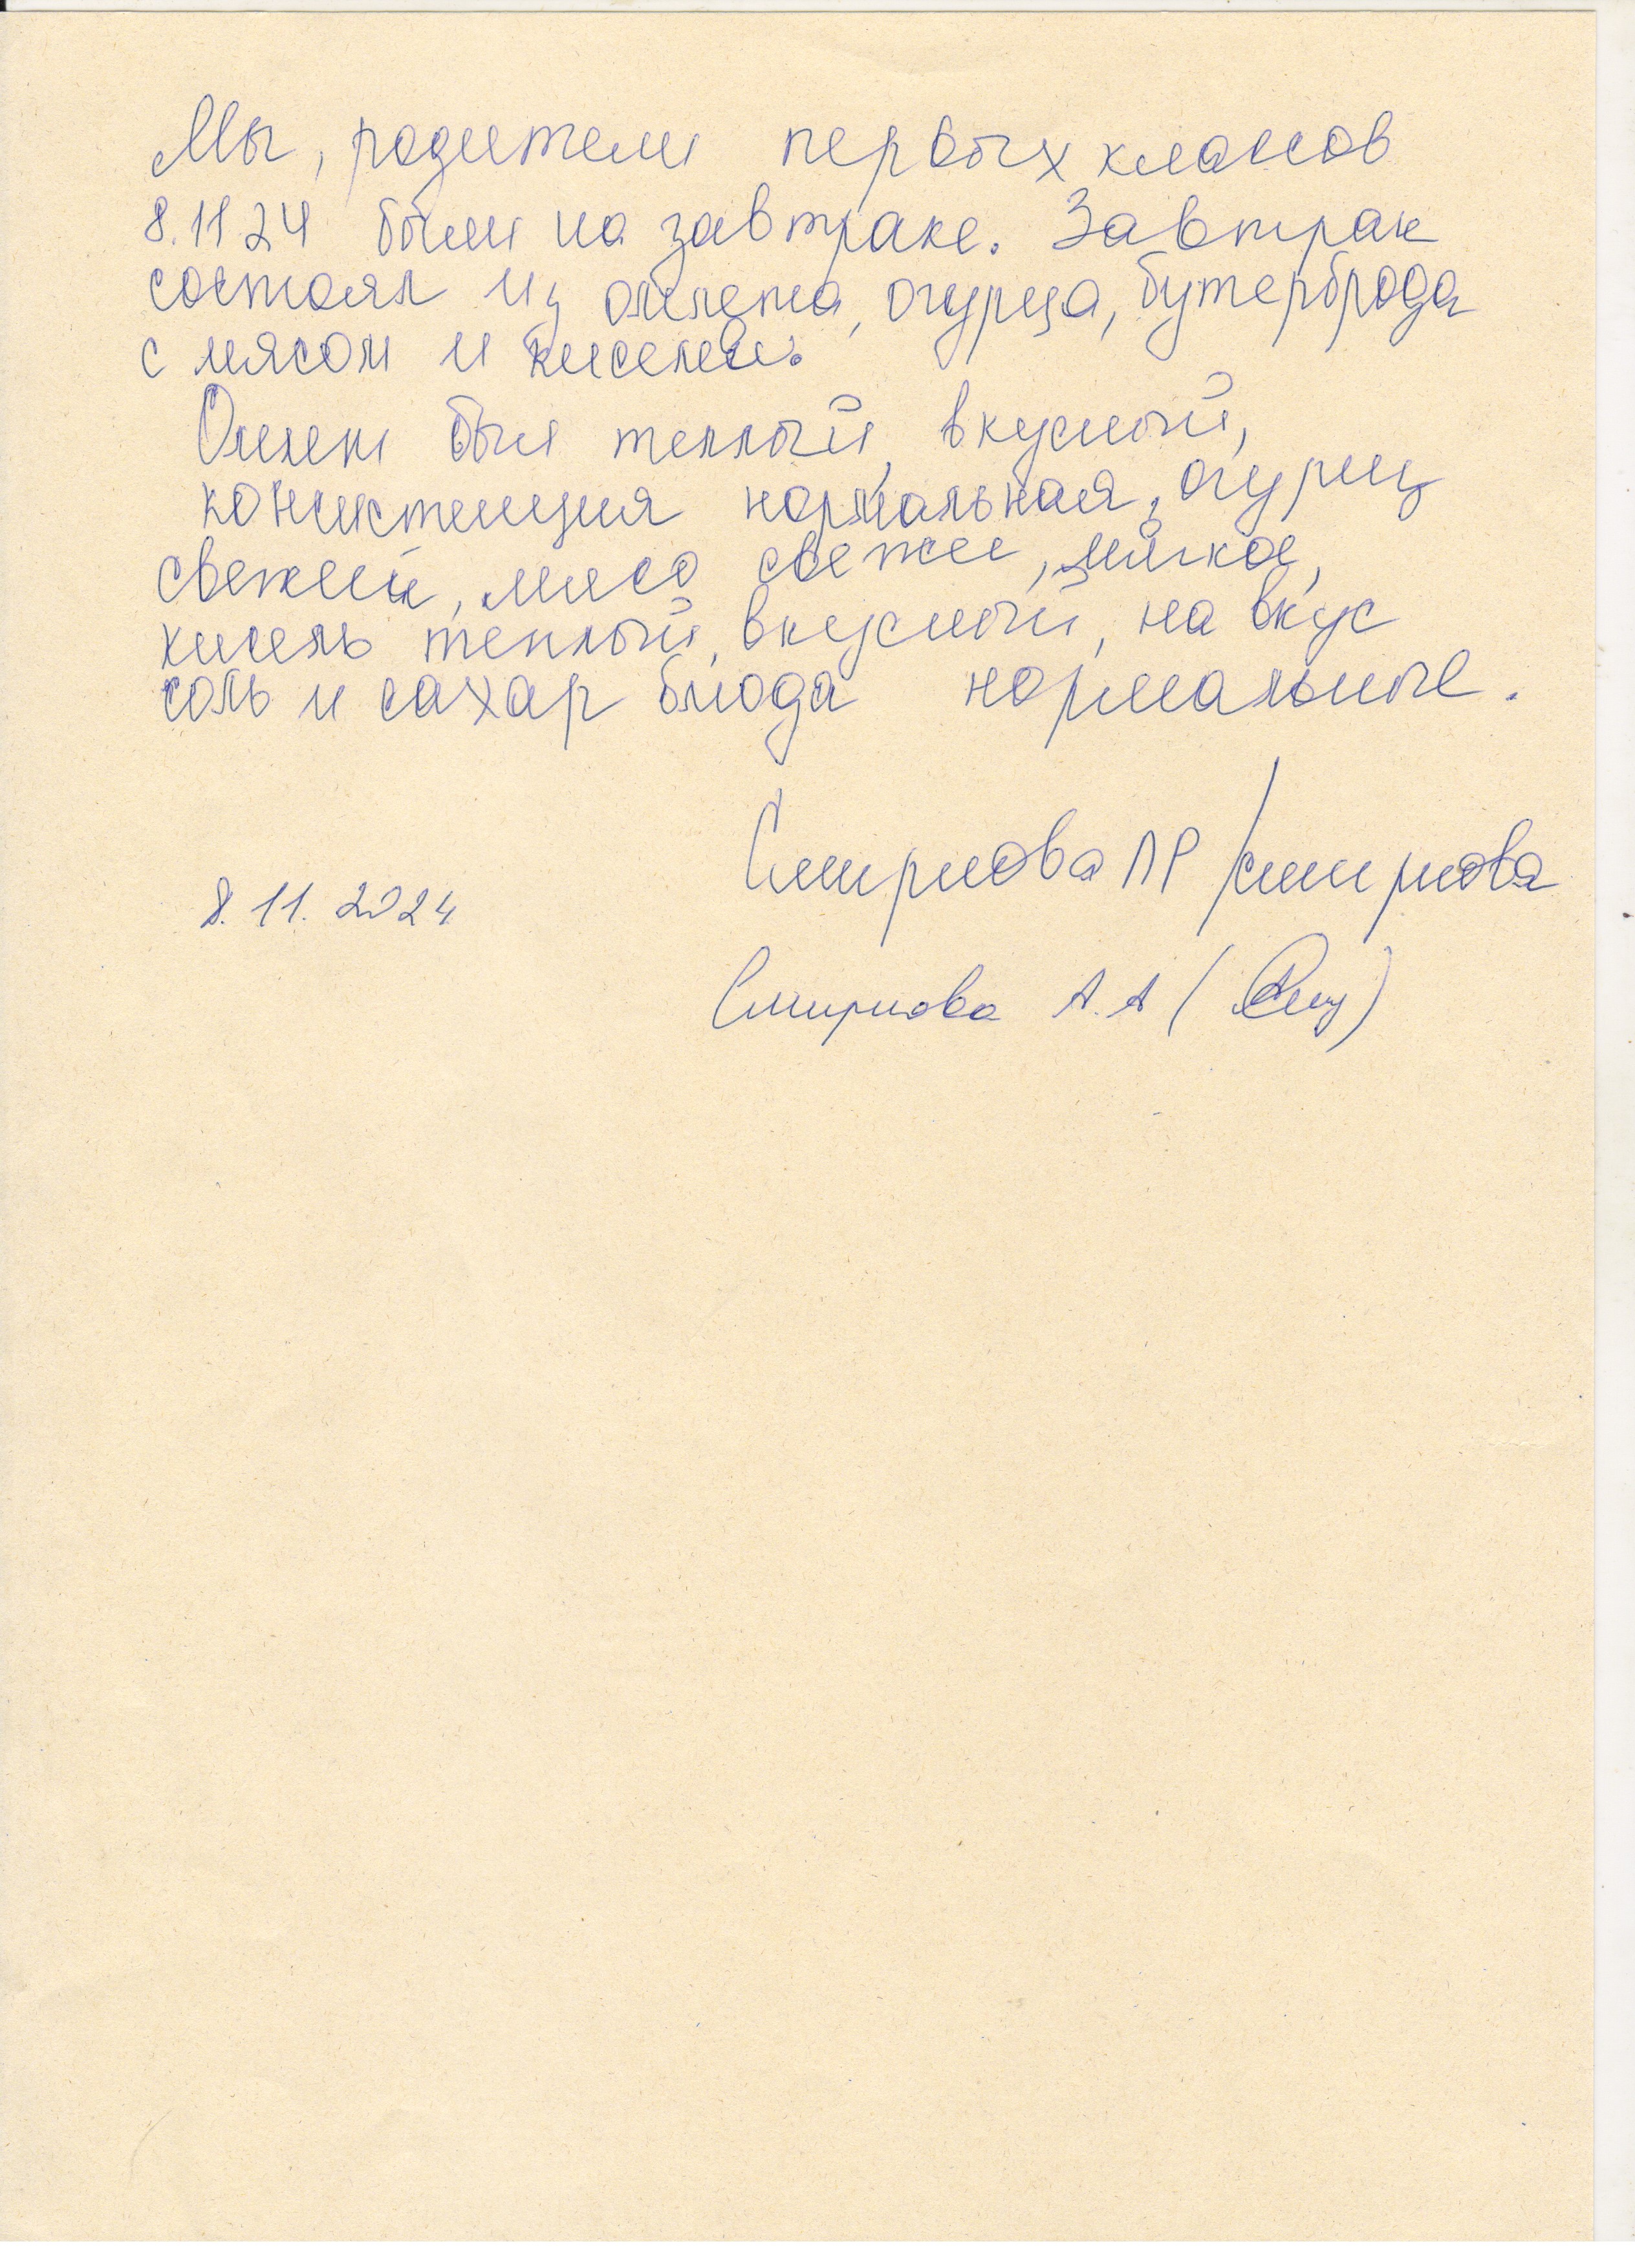 Мы, родители первых классов
8.11 24 были на завтраке. Завтрак
состоял из омлета, огурца, бутерброда
с мясом и киселем.
Омлет был теплый, вкусный,
консистенция нормальная, огурец
свежий, мясо свежее, мягкое,
кисель теплый, вкусный, на вкус
соль и сахар блюда нормальные.
Смирнова ЛР /Смирнова
8.11.2024
Смирнова А.А ( )